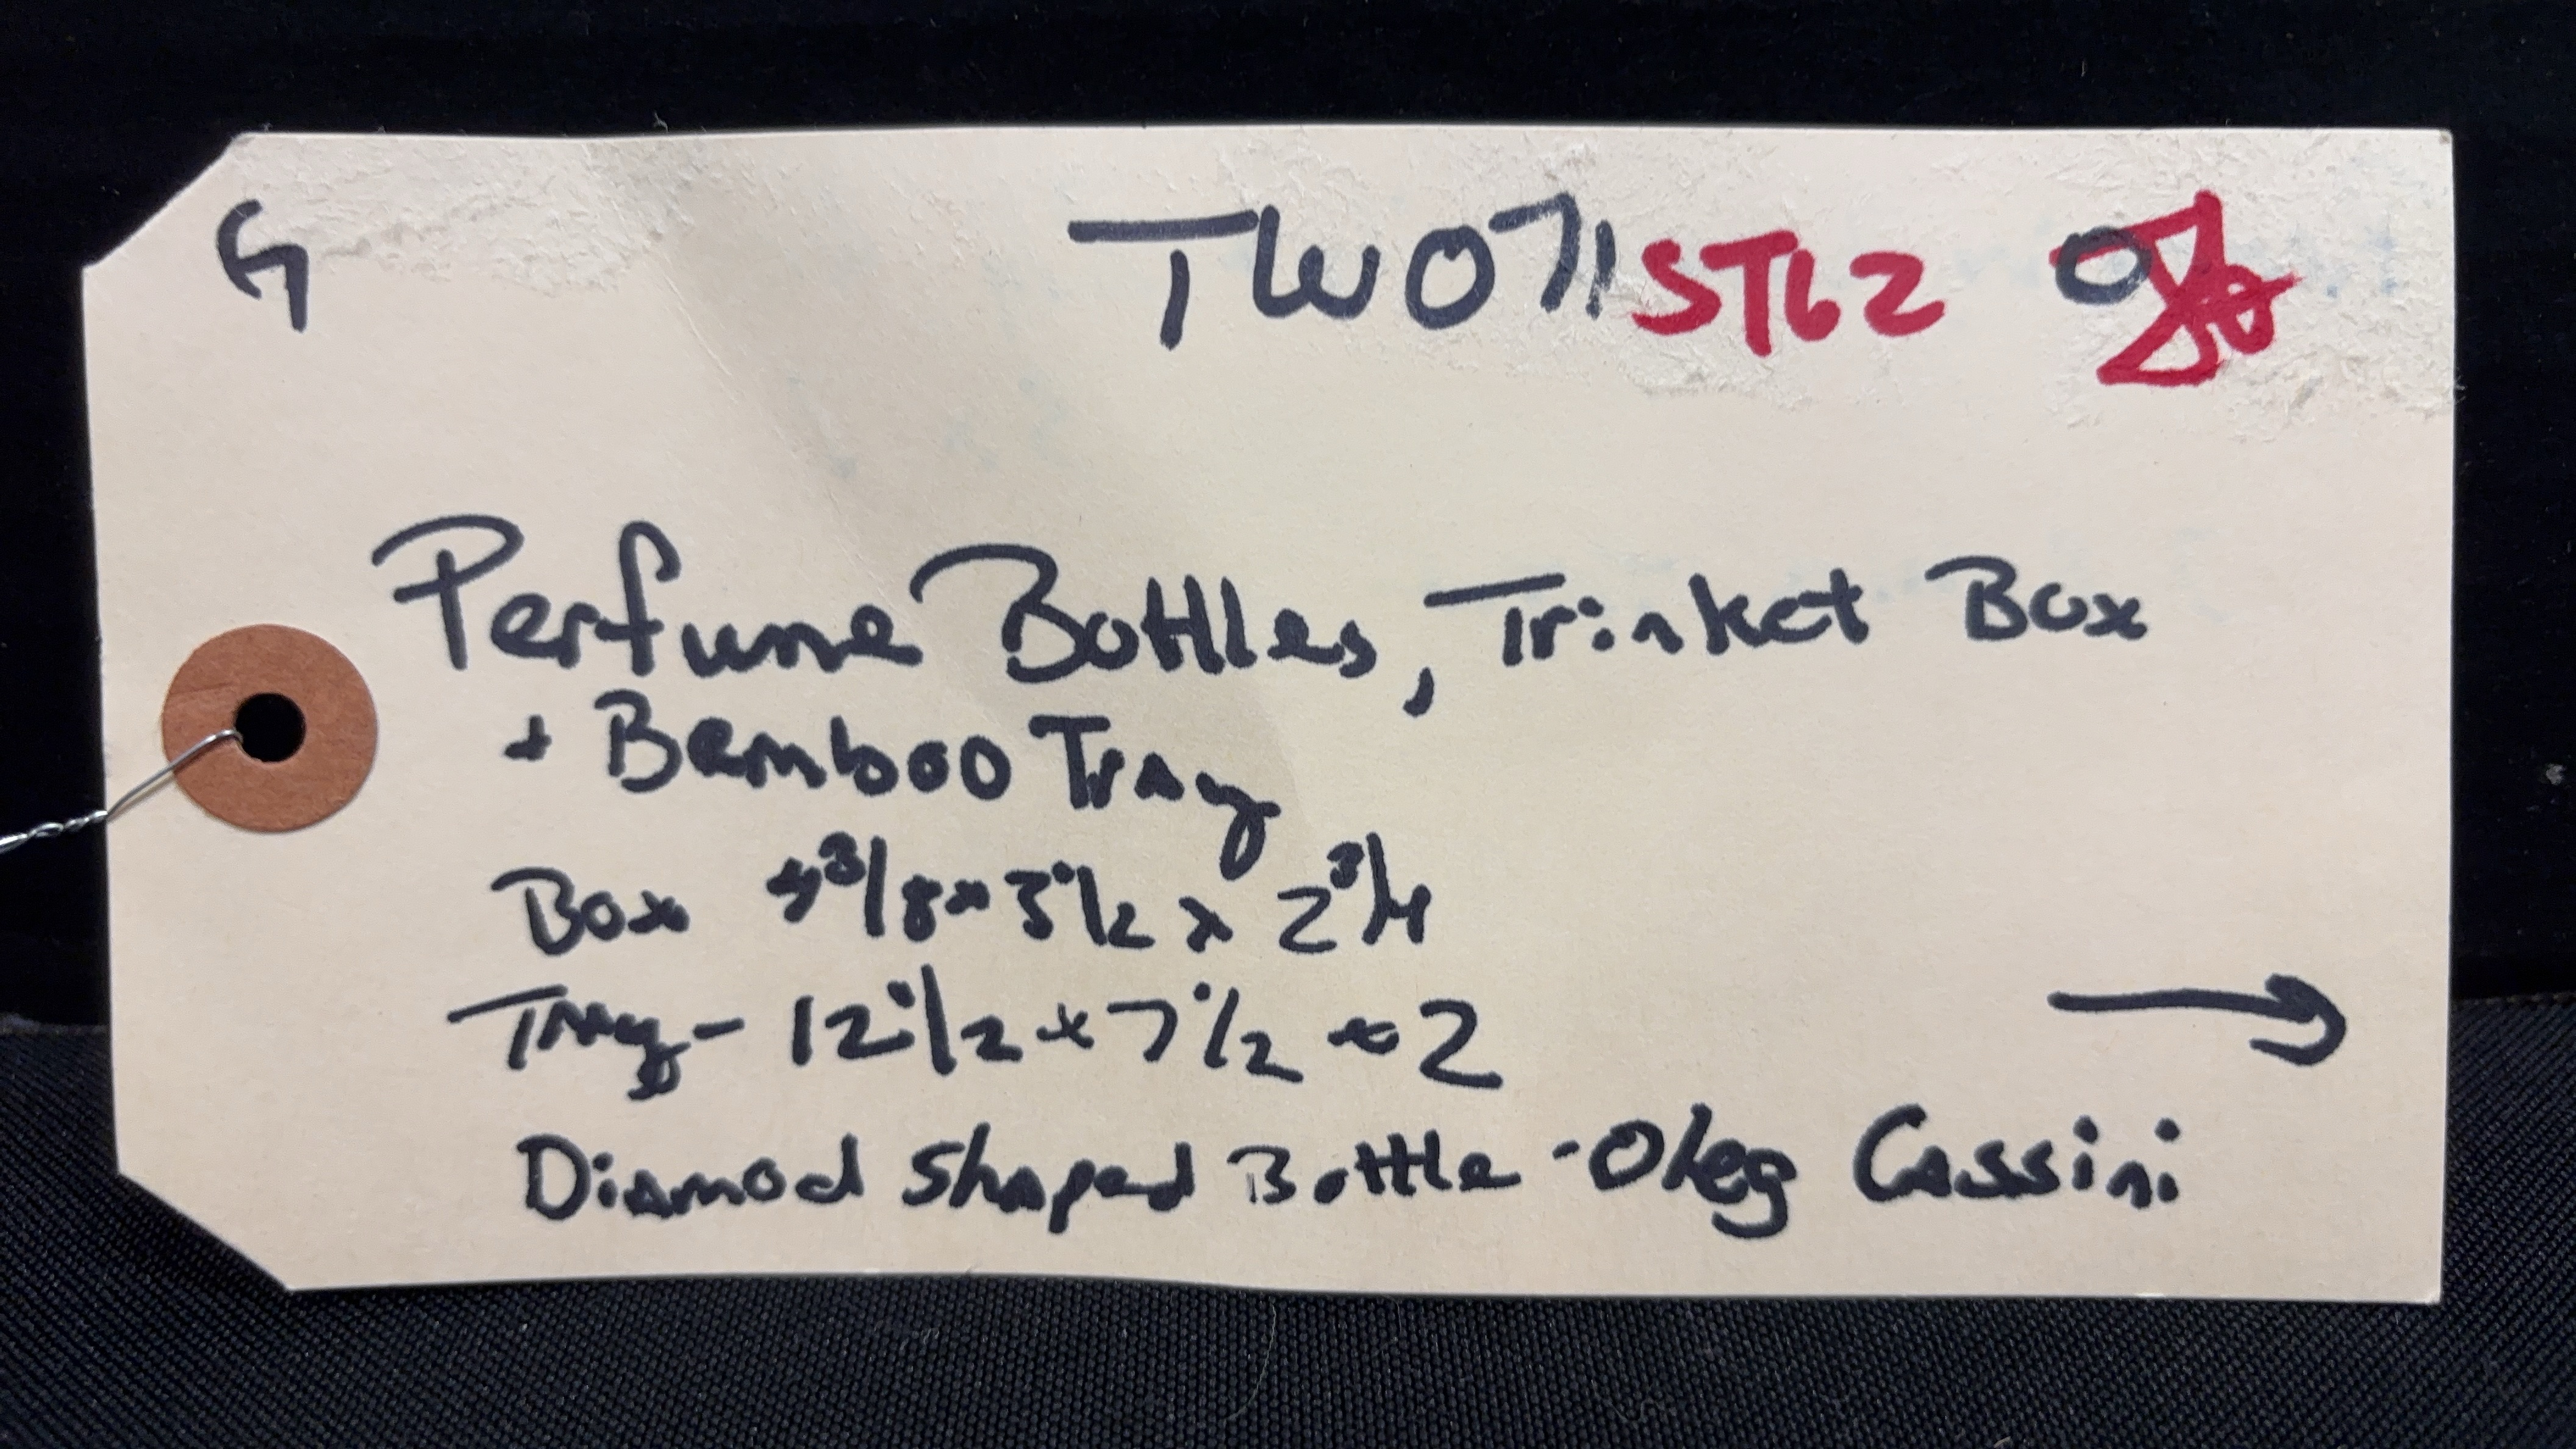 G TW071 ST62
Perfume Bottles, Trinket Box
+ Bamboo Tray
Box 3 1/2 x 2 3/4
Tray - 12 1/2 x 7 1/2 x 2
Diamod Shaped Bottle - Oleg Cassini